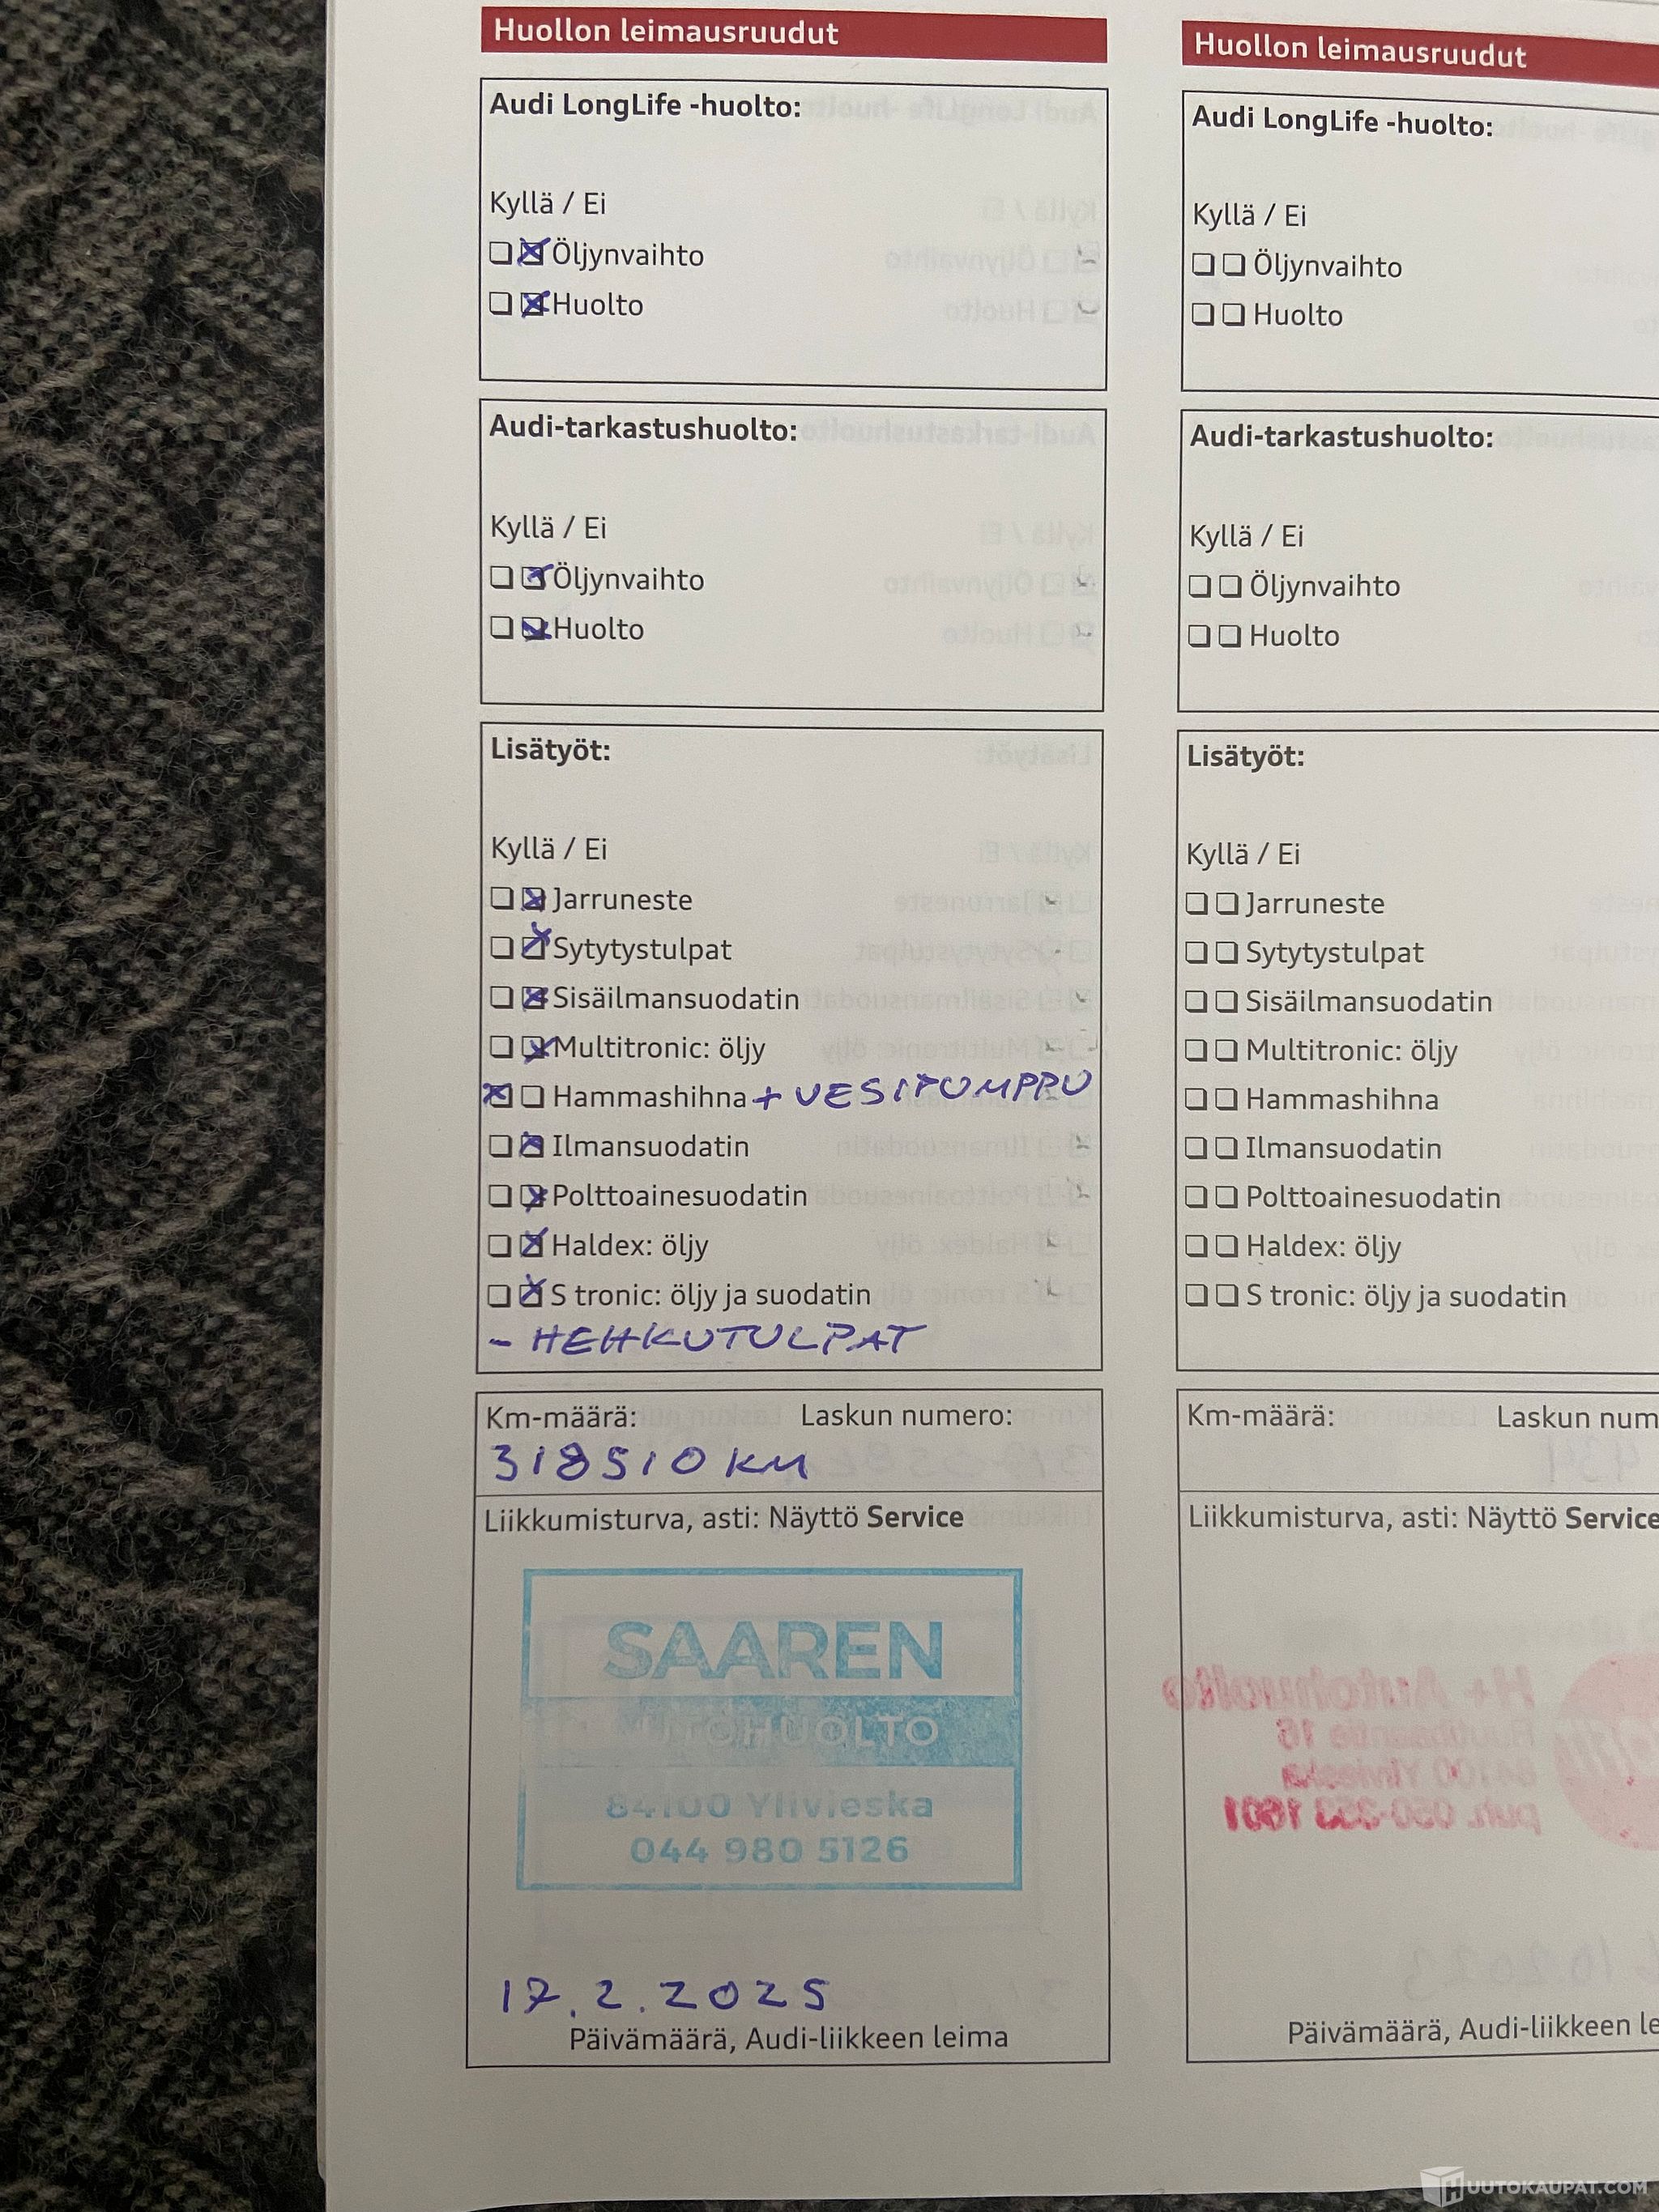 Huollon leimausruudut
Audi LongLife -huolto:
Kyllä / Ei
Öljynvaihto
Huolto
Audi-tarkastushuolto:
Kyllä / Ei
Öljynvaihto
Huolto
Lisätyöt:
Kyllä / Ei
Jarruneste
Sytytystulpat
Sisäilmansuodatin
Multitronic: öljy
Hammashihna + VESIPUMPPU
Ilmansuodatin
Polttoainesuodatin
Haldex: öljy
S tronic: öljy ja suodatin
- HEHKUTULPAT
Km-määrä: Laskun numero:
318510 KM
Liikkumisturva, asti: Näyttö Service
SAAREN
UTOHUOLTO
84100 Ylivieska
044 980 5126
17.2.2025
Päivämäärä, Audi-liikkeen leima
Huollon leimausruudut
Audi LongLife -huolto:
Kyllä / Ei
Öljynvaihto
Huolto
Audi-tarkastushuolto:
Kyllä / Ei
Öljynvaihto
Huolto
Lisätyöt:
Kyllä / Ei
Jarruneste
Sytytystulpat
Sisäilmansuodatin
Multitronic: öljy
Hammashihna
Ilmansuodatin
Polttoainesuodatin
Haldex: öljy
S tronic: öljy ja suodatin
Km-määrä: Laskun num
Liikkumisturva, asti: Näyttö Service
H+ Autohuolto
84100 Ylivieska
puh. 050-353 1601
Päivämäärä, Audi-liikkeen le
HUUTOKAUPAT.COM